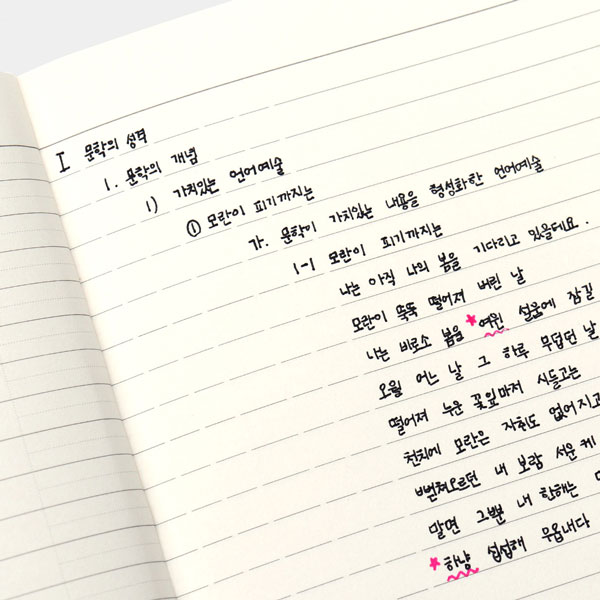 I 문학의 성격
1. 문학의 개념
1) 가치있는 언어예술
① 모란이 피기까지는
가. 문학이 가치있는 내용을 형성화한 언어예술
1-1 모란이 피기까지는
나는 아직 나의 봄을 기다리고 있을테요.
모란이 뚝뚝 떨어져 버린 날
나는 비로소 봄을 ★여윈 설움에 잠길
오월 어느 날 그 하루 무덥던 날
떨어져 누운 꽃잎마저 시들고는
천치에 모란은 자취도 없어지고
뻗쳐오르던 내 보람 서운케
말면 그뿐 내 한해는
★하냥 섭섭해 우옵내다